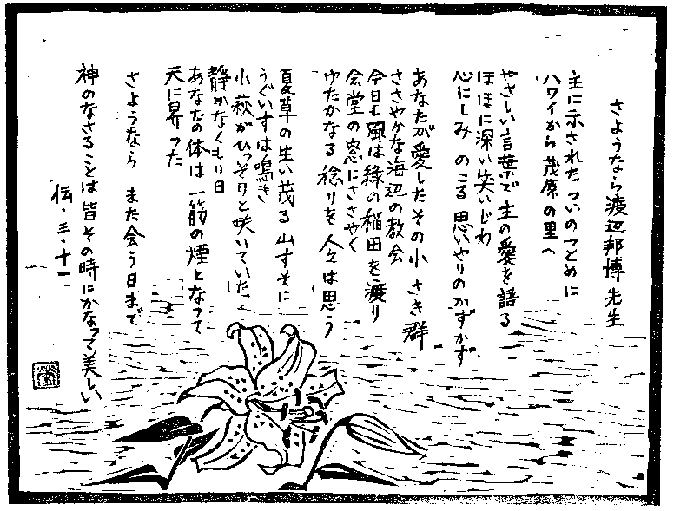 さようなら渡辺邦博先生
主に示されたついのつとめに
ハワイから茂原の里へ
やさしい言葉で主の愛を語る
ほほに深い笑いじわ
心にしみのこる思いやりのかずかず
あなたが愛したその小さき群
ささやかな海辺の教会
今日も風は緑の稲田を渡り
会堂の窓にささやく
ゆたかなる稔りを人々は思う
夏草の生い茂る山すそに
うぐいすは鳴き
小萩がひっそりと咲いていた
静かなくもり日
あなたの体は一筋の煙となって
天に昇った
さようなら また会う日まで
神のなさることは皆その時にかなって美しい
伝・三・十一